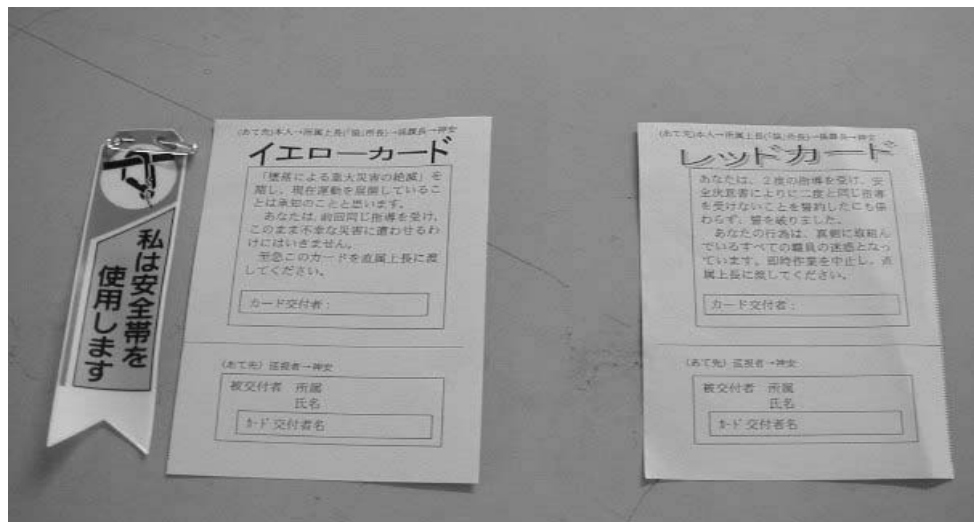 私は安全帯を
使用します
(あて先)本人→所属上長(「協」所長)→係課長→神安
イエローカード
「墜落による重大災害の絶滅」を
期し、現在運動を展開しているこ
とは承知のことと思います。
あなたは、前回同じ指導を受け、
このまま不幸な災害に遭わせるわ
けにはいきません。
至急このカードを直属上長に渡
してください。
カード交付者:
(あて先)巡視者→神安
被交付者 所属
氏名
カード交付者名
(あて先)本人→所属上長(「協」所長)→係課長→神安
レッドカード
あなたは、2度の指導を受け、安
全決意書によりに二度と同じ指導
を受けないことを誓約したにも係
わらず、誓を破りました。
あなたの行為は、真剣に取組ん
でいるすべての職員の迷惑となっ
ています。即時作業を中止し、直
属上長に渡してください。
カード交付者:
(あて先)巡視者→神安
被交付者 所属
氏名
カード交付者名